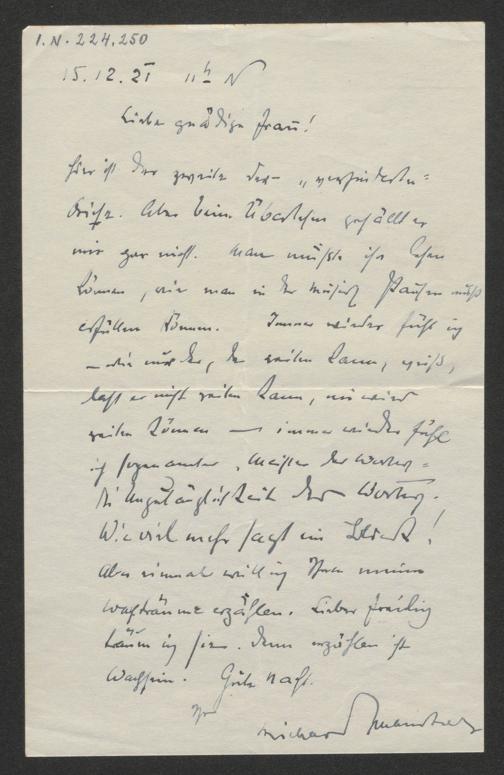 I.N. 224.250
15.12.21 11h N
Liebe gnädige Frau!
hier ist der zweite der „verhinderten"
Briefe. Aber beim Überlesen gefällt er
mir gar nicht. Man müßte ihn lesen
können, wie man in der Musik Pausen muß
erfüllen können. Immer wieder fühl ich
– wie nur der, der reiten kann, weiß,
daß er nicht reiten kann, nie wird
reiten können – immer wieder fühle
ich sogenannter „Meister der Wortes"
die Unzulänglichkeit des Wortes.
Wieviel mehr sagt ein Blick!
Aber einmal will ich Ihnen meine
Wachträume erzählen. Lieber freilich
träum ich sie. Denn erzählen ist
Wachsein. Gute Nacht.
Ihr
Richard